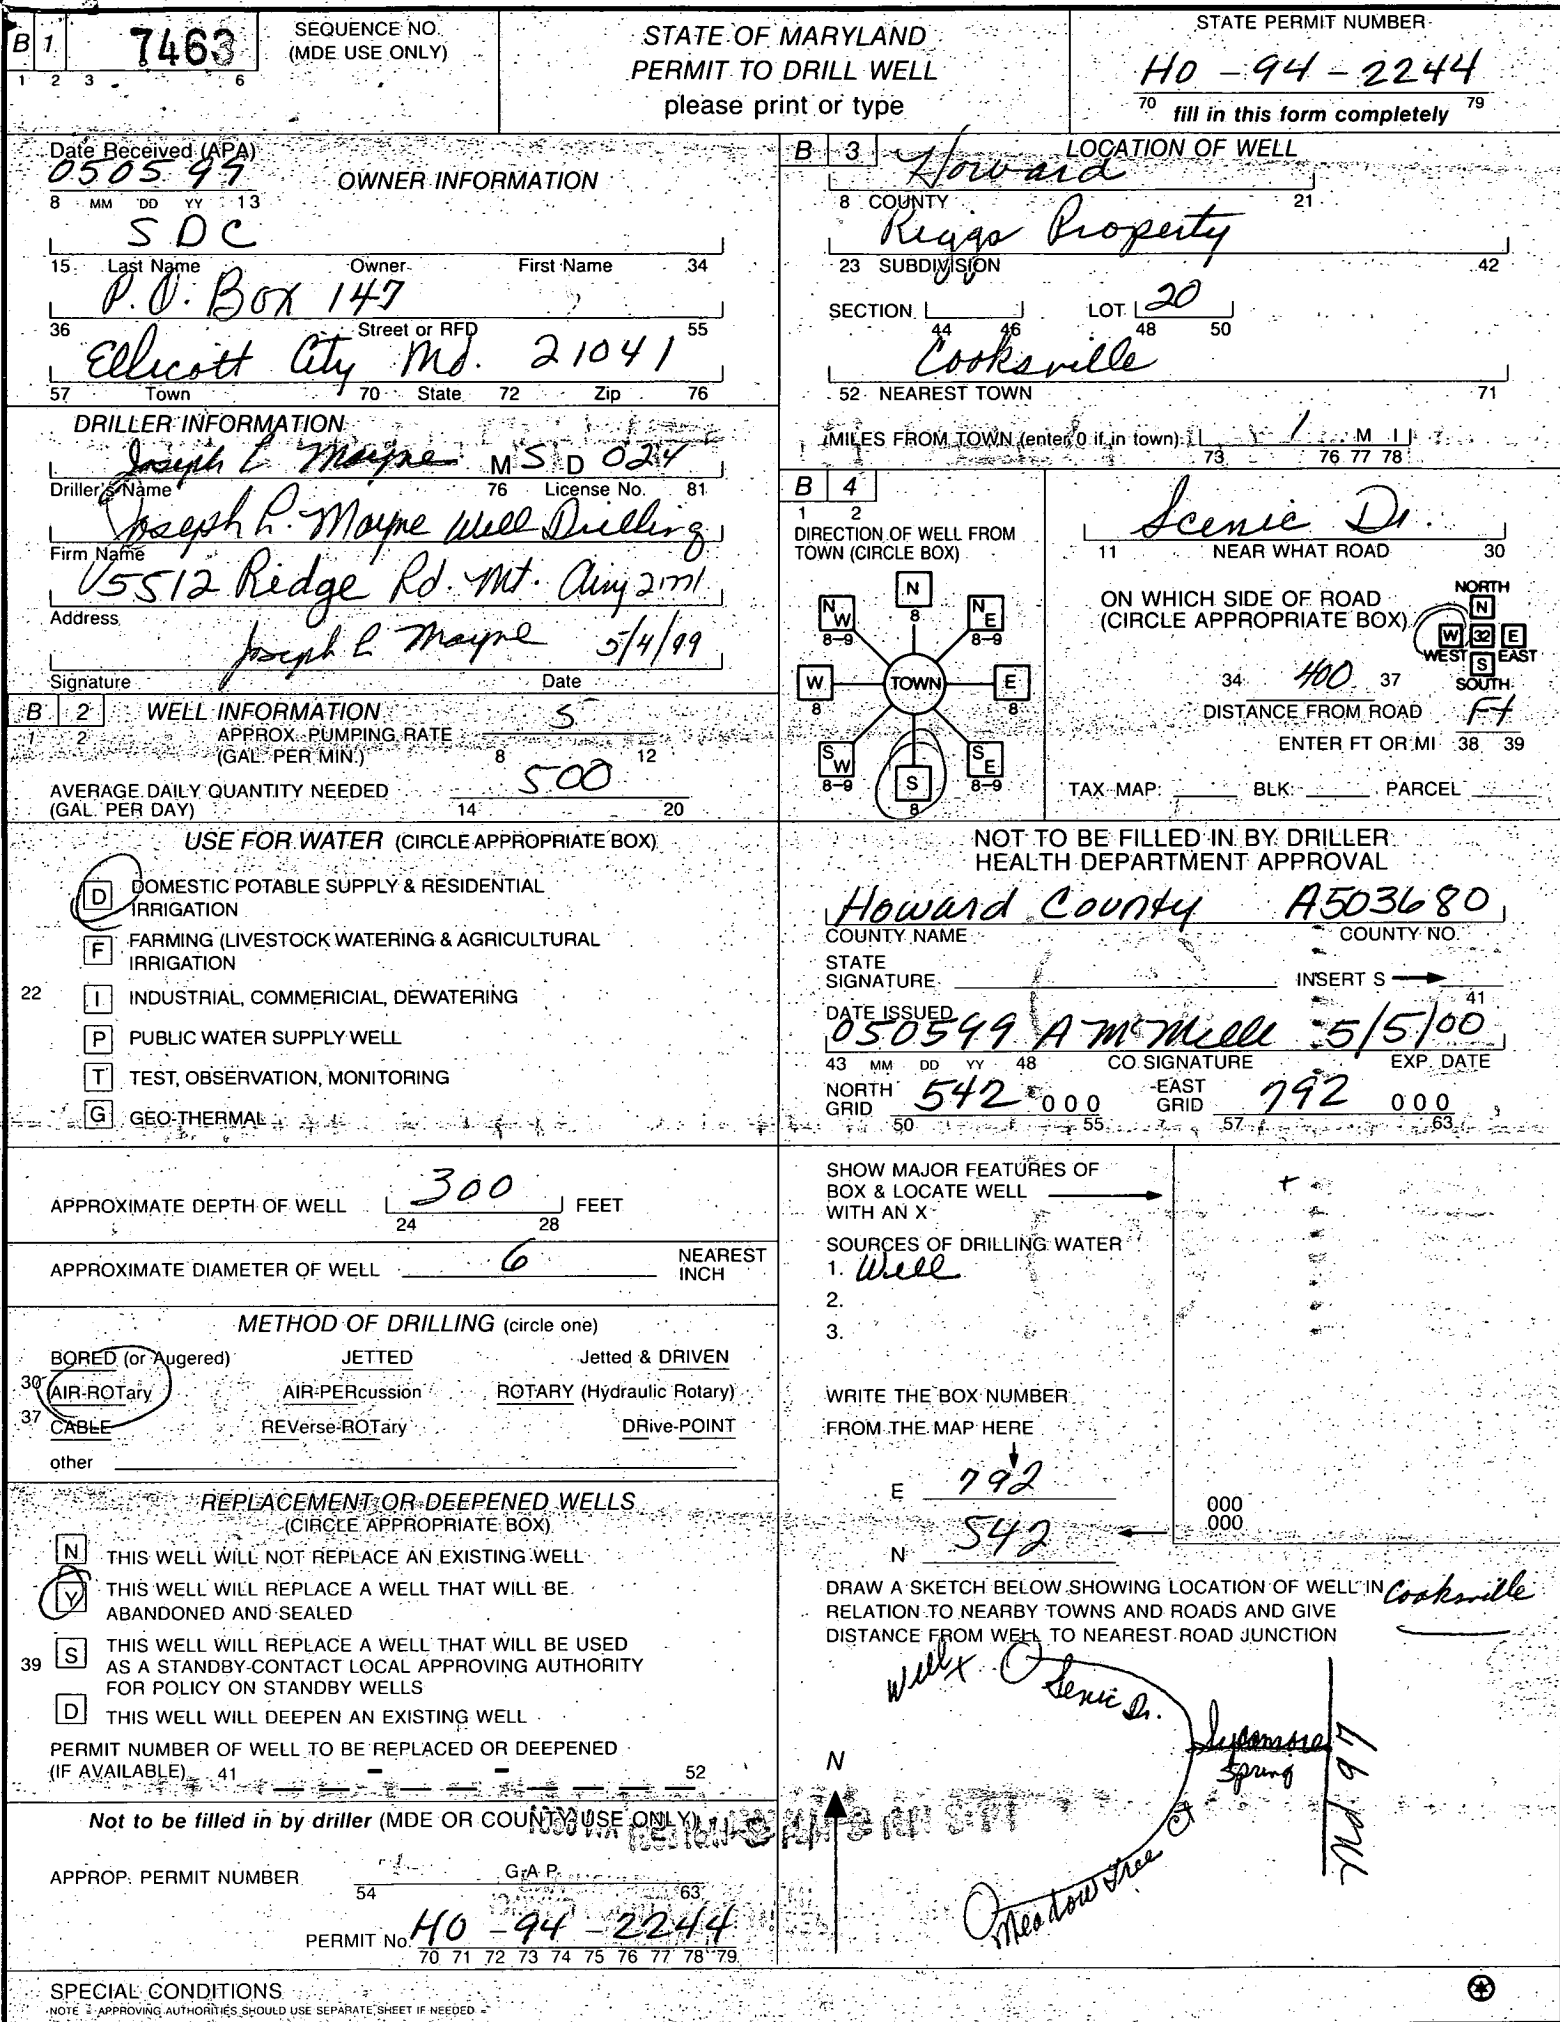 B 1 7463 SEQUENCE NO. (MDE USE ONLY)
1 2 3 6
STATE OF MARYLAND
PERMIT TO DRILL WELL
please print or type
STATE PERMIT NUMBER
HO - 94 - 2244
70 fill in this form completely 79
Date Received (APA)
050599
8 MM DD YY 13
OWNER INFORMATION
SDC
15 Last Name Owner First Name 34
P.O. Box 147
36 Street or RFD 55
Ellicott City Md. 21041
57 Town 70 State 72 Zip 76
DRILLER INFORMATION
Joseph L Mayne M S D 024
Driller's Name 76 License No. 81
Joseph L. Mayne Well Drilling
Firm Name
5512 Ridge Rd. Mt. Airy 21771
Address
Joseph L Mayne 5/4/99
Signature Date
B 2 WELL INFORMATION
1 2
APPROX. PUMPING RATE
(GAL. PER MIN.) 5
8 12
AVERAGE DAILY QUANTITY NEEDED
(GAL. PER DAY) 500
14 20
USE FOR WATER (CIRCLE APPROPRIATE BOX)
D DOMESTIC POTABLE SUPPLY & RESIDENTIAL
IRRIGATION
F FARMING (LIVESTOCK WATERING & AGRICULTURAL
IRRIGATION
22 I INDUSTRIAL, COMMERICIAL, DEWATERING
P PUBLIC WATER SUPPLY WELL
T TEST, OBSERVATION, MONITORING
G GEO-THERMAL
APPROXIMATE DEPTH OF WELL 300 FEET
24 28
APPROXIMATE DIAMETER OF WELL 6 NEAREST
INCH
METHOD OF DRILLING (circle one)
BORED (or Augered) JETTED Jetted & DRIVEN
30 AIR-ROTary AIR-PERcussion ROTARY (Hydraulic Rotary)
37 CABLE REVerse-ROTary DRive-POINT
other
REPLACEMENT OR DEEPENED WELLS
(CIRCLE APPROPRIATE BOX)
N THIS WELL WILL NOT REPLACE AN EXISTING WELL
Y THIS WELL WILL REPLACE A WELL THAT WILL BE
ABANDONED AND SEALED
39 S THIS WELL WILL REPLACE A WELL THAT WILL BE USED
AS A STANDBY-CONTACT LOCAL APPROVING AUTHORITY
FOR POLICY ON STANDBY WELLS
D THIS WELL WILL DEEPEN AN EXISTING WELL
PERMIT NUMBER OF WELL TO BE REPLACED OR DEEPENED
(IF AVAILABLE) 41 - - 52
Not to be filled in by driller (MDE OR COUNTY USE ONLY)
APPROP. PERMIT NUMBER G A P
54 63
PERMIT No. HO - 94 - 2244
70 71 72 73 74 75 76 77 78 79
SPECIAL CONDITIONS
NOTE - APPROVING AUTHORITIES SHOULD USE SEPARATE SHEET IF NEEDED -
B 3 LOCATION OF WELL
Howard
8 COUNTY 21
Riggs Property
23 SUBDIVISION 42
SECTION LOT 20
44 46 48 50
Cooksville
52 NEAREST TOWN 71
MILES FROM TOWN (enter 0 if in town) 1 M I
73 76 77 78
B 4
1 2
DIRECTION OF WELL FROM
TOWN (CIRCLE BOX)
N
8
NW NE
8-9 8-9
W TOWN E
8 8
SW SE
8-9 8-9
S
8
Scenic Dr.
11 NEAR WHAT ROAD 30
ON WHICH SIDE OF ROAD
(CIRCLE APPROPRIATE BOX)
NORTH
N
W 32 E
WEST EAST
S
SOUTH
34 400 37
DISTANCE FROM ROAD Ft
ENTER FT OR MI 38 39
TAX MAP: BLK: PARCEL
NOT TO BE FILLED IN BY DRILLER
HEALTH DEPARTMENT APPROVAL
Howard County A503680
COUNTY NAME COUNTY NO.
STATE
SIGNATURE INSERT S
41
DATE ISSUED
050599 A McMille 5/5/00
43 MM DD YY 48 CO SIGNATURE EXP. DATE
NORTH
GRID 542 000 EAST
GRID 792 000
50 55 57 63
SHOW MAJOR FEATURES OF
BOX & LOCATE WELL
WITH AN X
SOURCES OF DRILLING WATER
1. Well
2.
3.
WRITE THE BOX NUMBER
FROM THE MAP HERE
E 792
N 542
000
000
DRAW A SKETCH BELOW SHOWING LOCATION OF WELL IN
RELATION TO NEARBY TOWNS AND ROADS AND GIVE
DISTANCE FROM WELL TO NEAREST ROAD JUNCTION
Cooksville
Well x
Senic Dr.
Sycamore
Spring
Md 97
N
Meadow Tree Ct